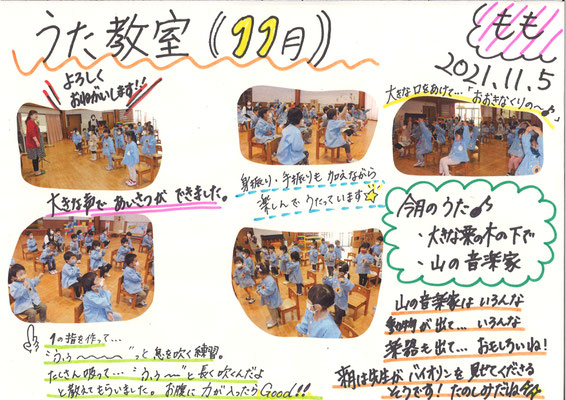 うた教室《11月》
もも
2021.11.5
よろしく
おねがいします!!
大きな口をあけて…「おおきなくりの～♪」
大きな声で あいさつが できました。
身振り・手振りも加えながら
楽しんで うたっています☆
今月のうた♪
・大きな栗の木の下で
・山の音楽家
1の指を作って…
"ふぅ～～～"っと 息を吹く練習。
たくさん吸って…"ふぅ～"と長く吹くんだよ
と教えてもらいました。お腹に力が入ったらGood!!
山の音楽家は いろんな
動物が出て… いろんな
楽器も出て… おもしろいね!
先生が バイオリンを 見せてくださる
そうです! たのしみだね